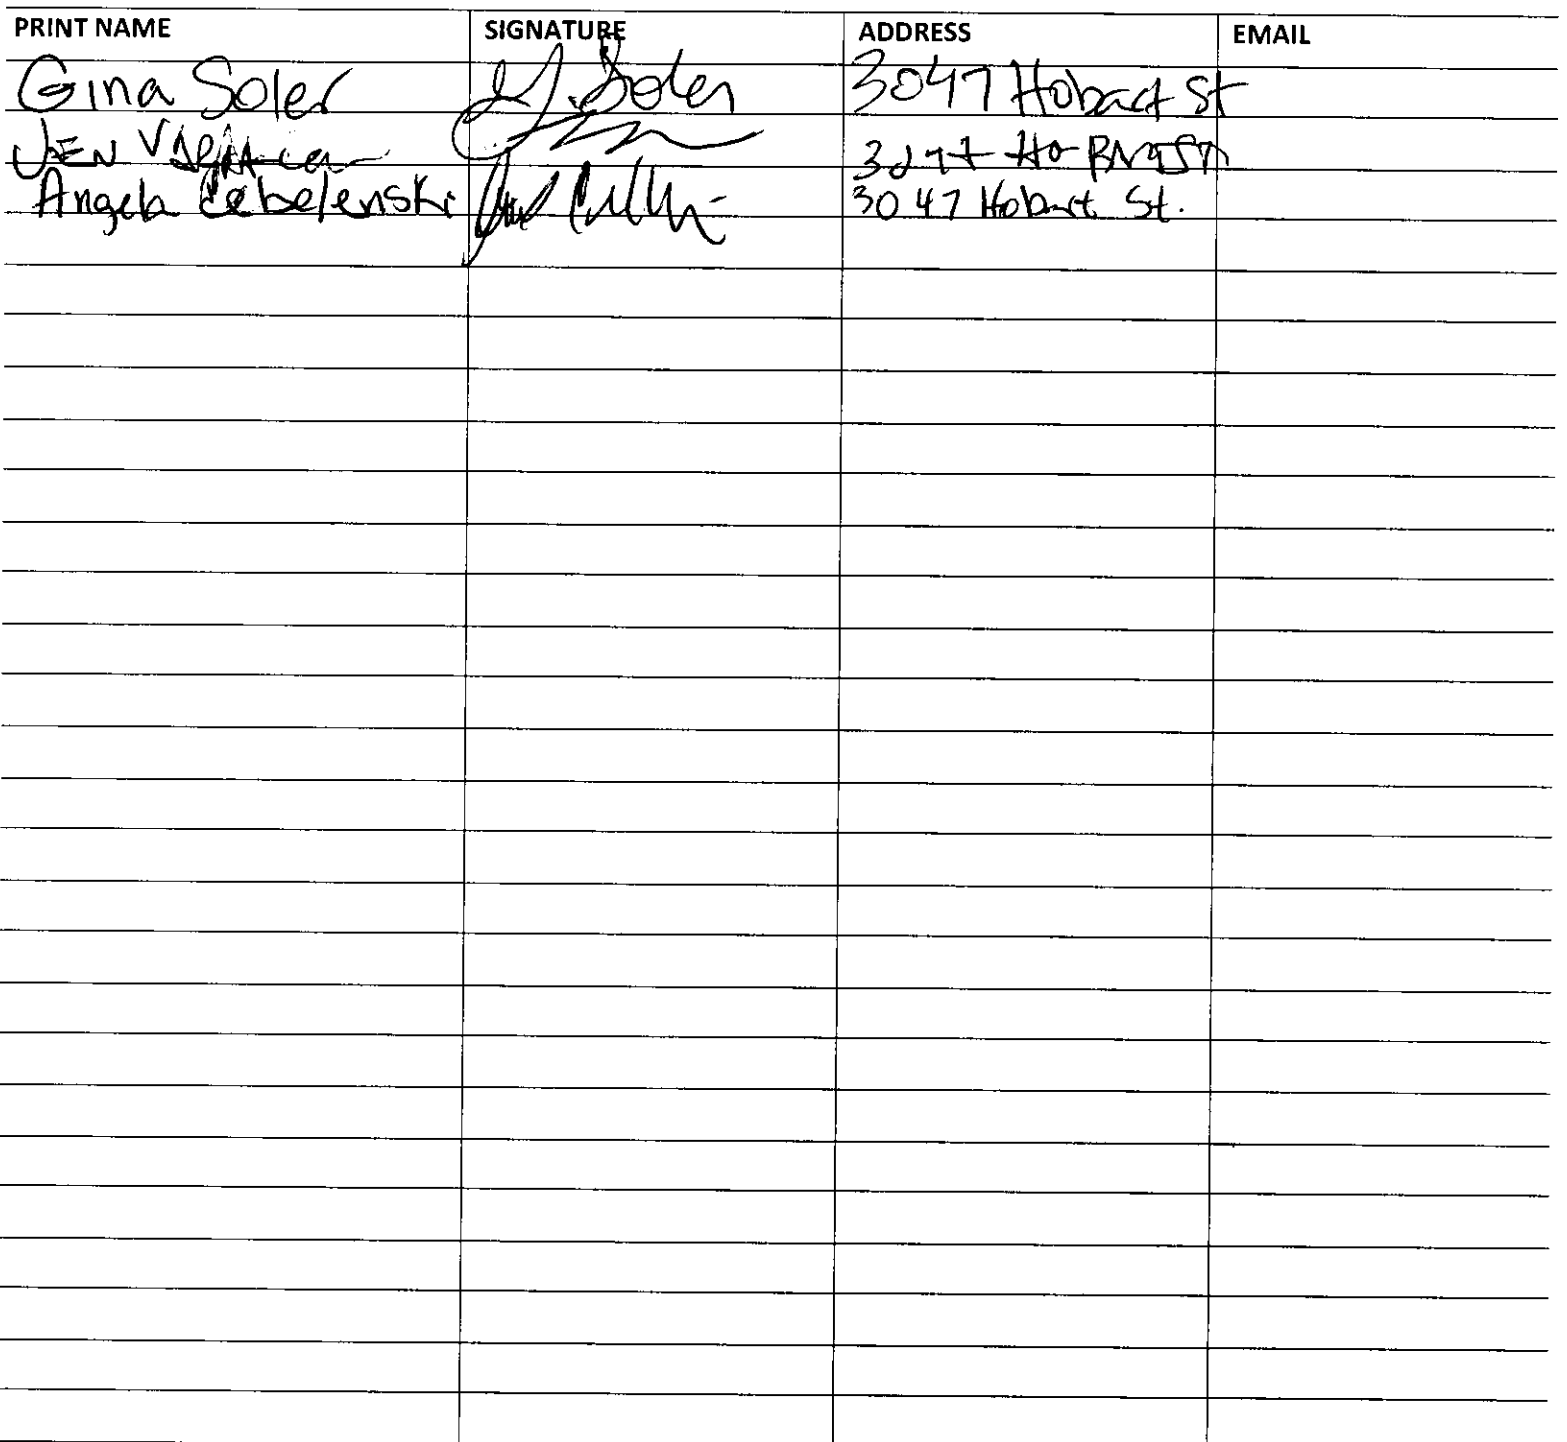 PRINT NAME SIGNATURE ADDRESS EMAIL
Gina Soler G. Soler 3047 Hobart St
JEN
Angela Cebelenski 3047 Hobart St.